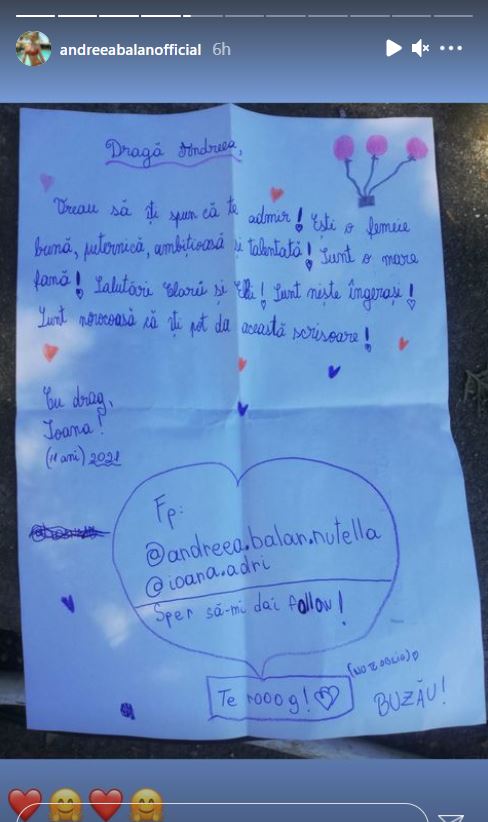 andreeabalanofficial 6h
Dragă Andreea,
Vreau să îți spun că te admir! Ești o femeie
bună, puternică, ambițioasă și talentată! Sunt o mare
fană! Salutări Clarei și Elli! Sunt niște îngerași!
Sunt norocoasă că îți pot da această scrisoare!
Cu drag,
Ioana!
(11 ani) 2021
Fp:
@andreea.balan.nutella
@ioana.adri
Sper să-mi dai follow!
Te rooog!
BUZĂU!